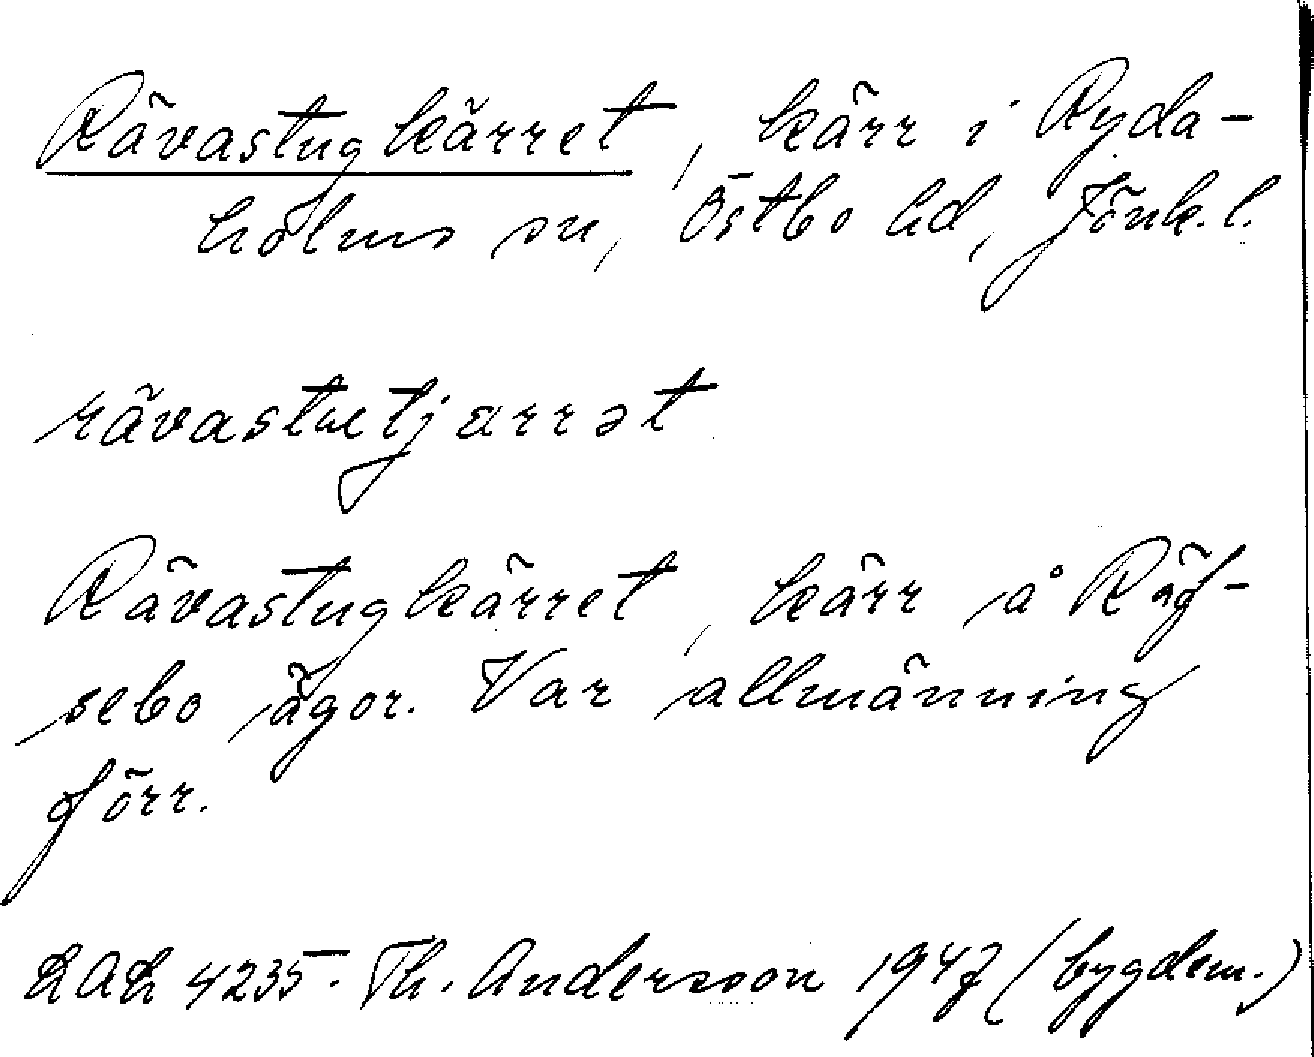 Rävastugkärret, kärr i Ryda-
holms sn, Östbo hd, Jönk. l.
rävastuetjærrət
Rävastugkärret, kärr å Räf-
sebo ägor. Var allmänning
förr.
4235. Th. Andersson 1947 (bygdem.)